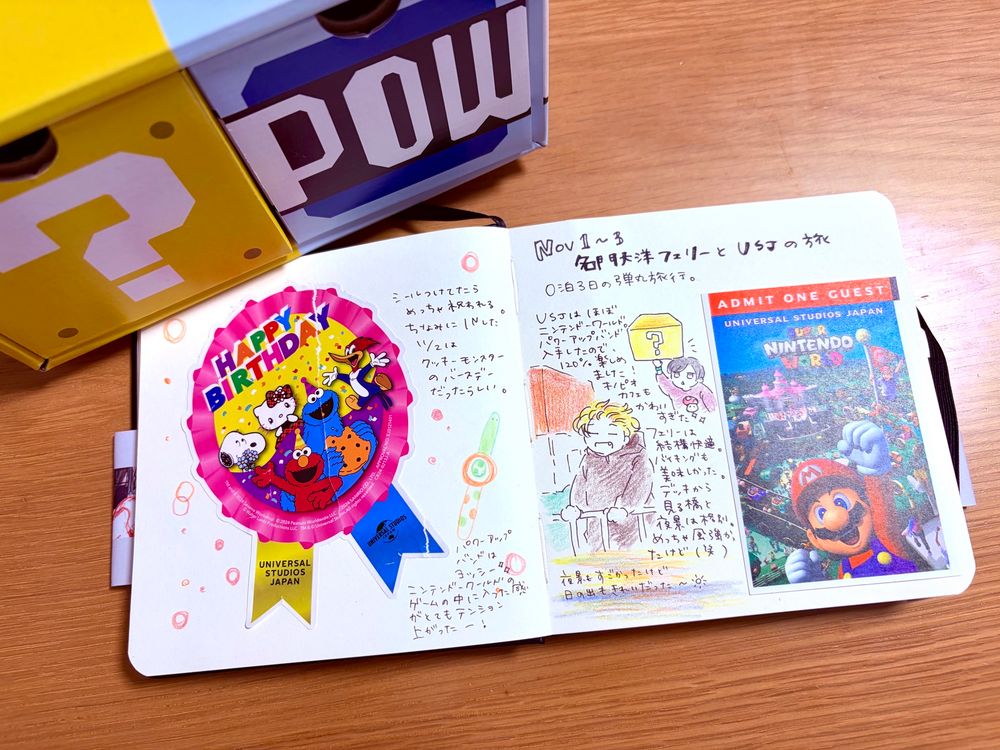 ?
POW
HAPPY
BIRTHDAY
UNIVERSAL
STUDIOS
JAPAN
UNIVERSAL STUDIOS
シールつけてたら
めっちゃ祝われる。
ちなみにINした
11/2は
クッキーモンスター
のバースデー
だったらしい。
パワーアップ
バンドは
ヨッシー
ニンテンドーワールドの
ゲームの中に入った感
がとてもテンション
上がったー!
Nov 1~3
名門大洋フェリーとUSJの旅
0泊3日の弾丸旅行。
USJはほぼ
ニンテンドーワールド。
パワーアップバンド
入手したので
120%楽しめ
ました!
キノピオ
カフェも
かわい
すぎた
?
フェリーは
結構快適。
バイキングも
美味しかった。
デッキから
見る橋と
夜景は格別。
めっちゃ風強かっ
たけど(笑)
夜景もすごかったけど
日の出もきれいだった~
ADMIT ONE GUEST
UNIVERSAL STUDIOS JAPAN
SUPER
NINTENDO
WORLD